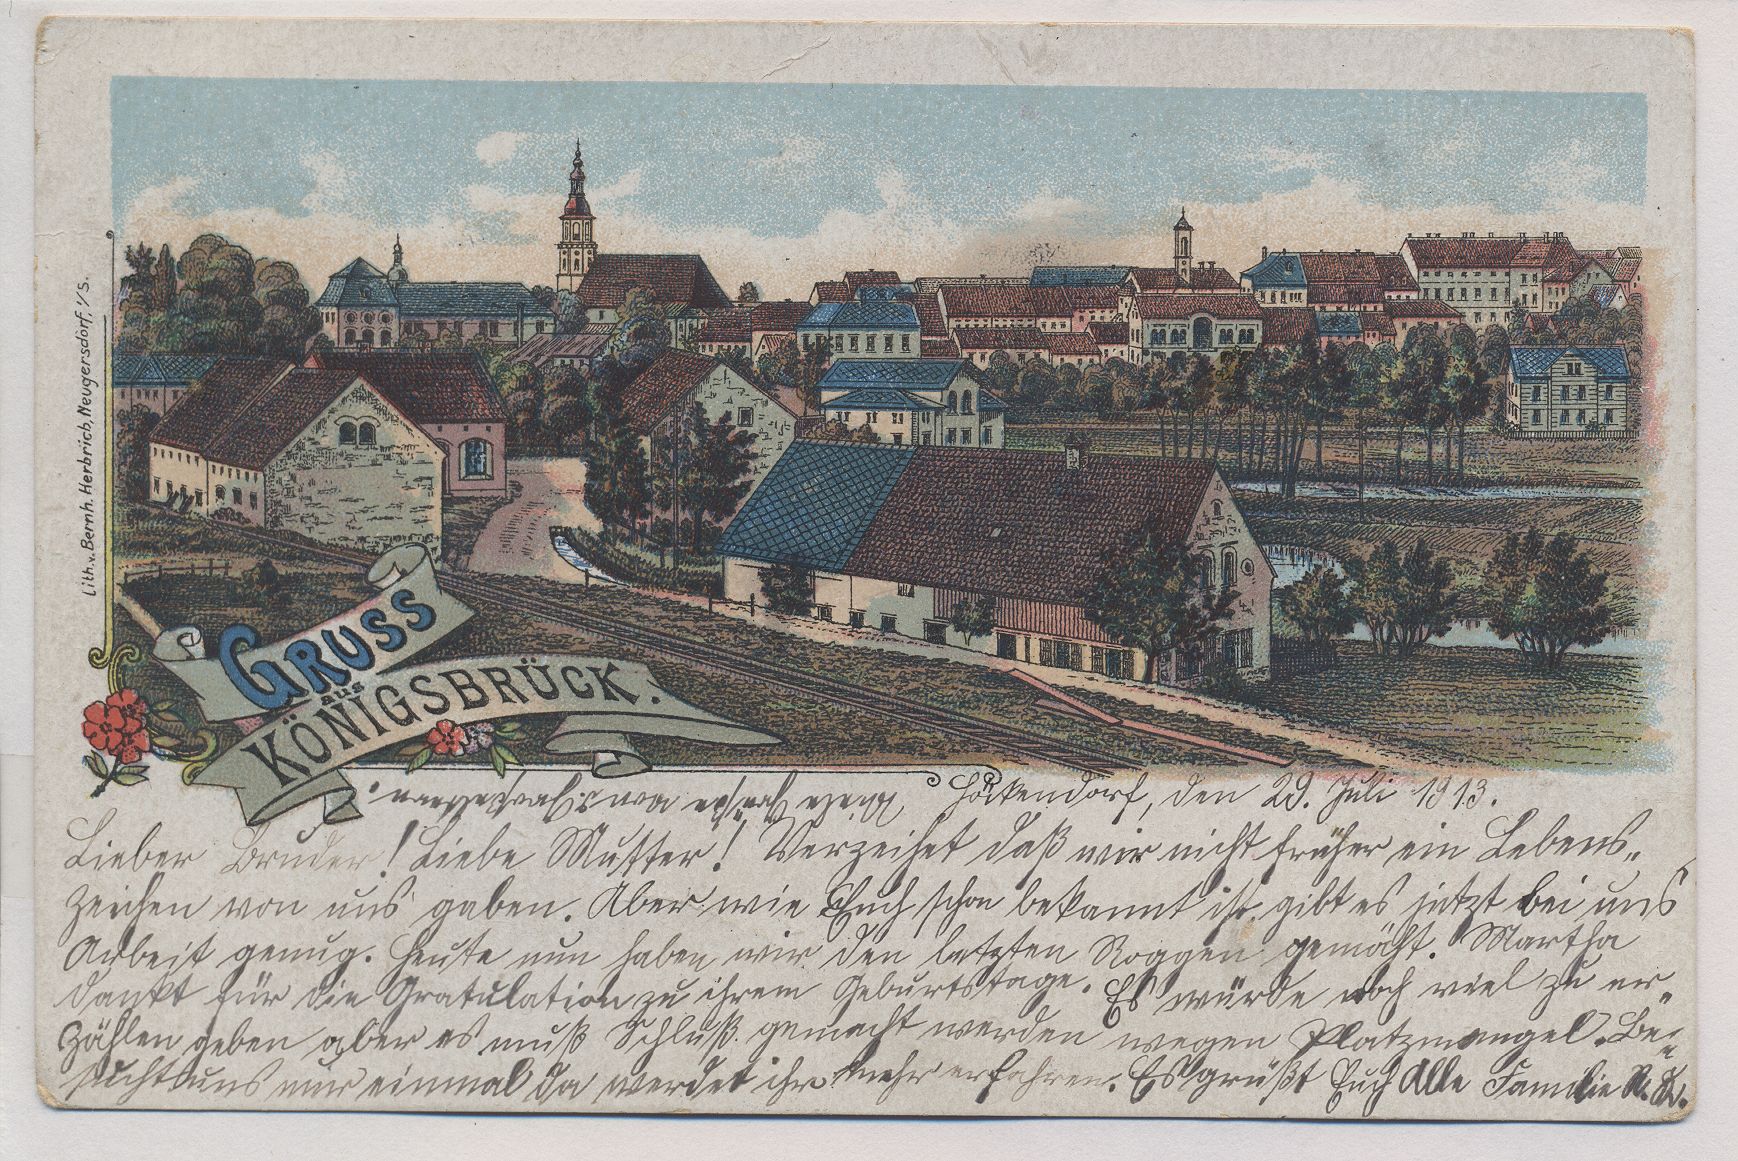 Lith. v. Bernh. Herbrich, Neugersdorf, i/S.
GRUSS
aus
KÖNIGSBRÜCK.
Höckendorf, den 29. Juli 1913.
Lieber Bruder! Liebe Mutter! Verzeihet daß wir nicht früher ein Lebens„
zeichen von uns gaben. Aber wie Euch schon bekannt ist, gibt es jetzt bei uns
Arbeit genug. Heute nun haben wir den letzten Roggen gemäht. Martha
dankt für die Gratulation zu ihrem Geburtstage. Es würde noch viel zu er„
zählen geben aber es muß Schluß gemacht werden wegen Platzmangel. Be„
sucht uns nur einmal da werdet ihr mehr erfahren. Es grüßt Euch Alle Familie